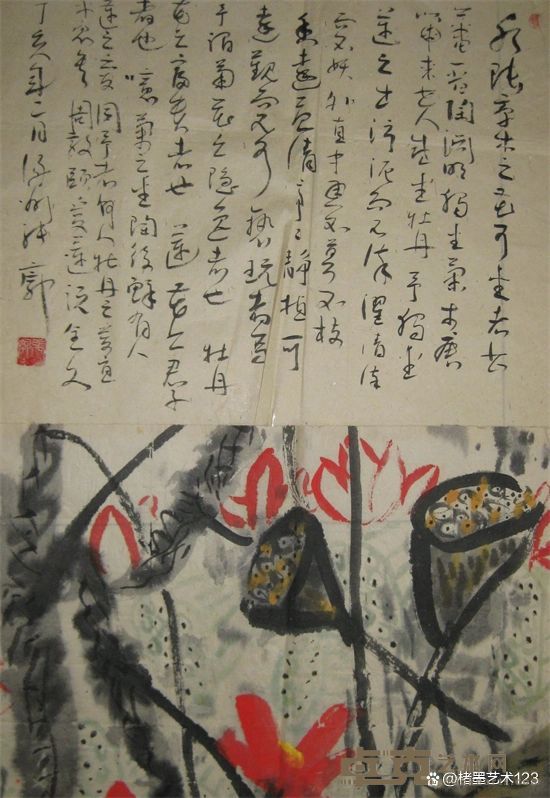 水陆草木之花可爱者甚
蕃晋陶渊明独爱菊
来世人盛爱牡丹 予独爱
莲之出淤泥而不染濯清涟
而不妖外直中通不蔓不枝
香远益清亭亭静植可
远观而不可亵玩者焉
予谓菊花之隐逸者也 牡丹
花之富贵者也 莲花之君子
者也 噫菊之爱陶后鲜有人
莲之爱同予者何人牡丹之爱宜
乎众矣 周敦颐爱莲说全文
丁亥年二月 郭
艺术网
@楮墨艺术123